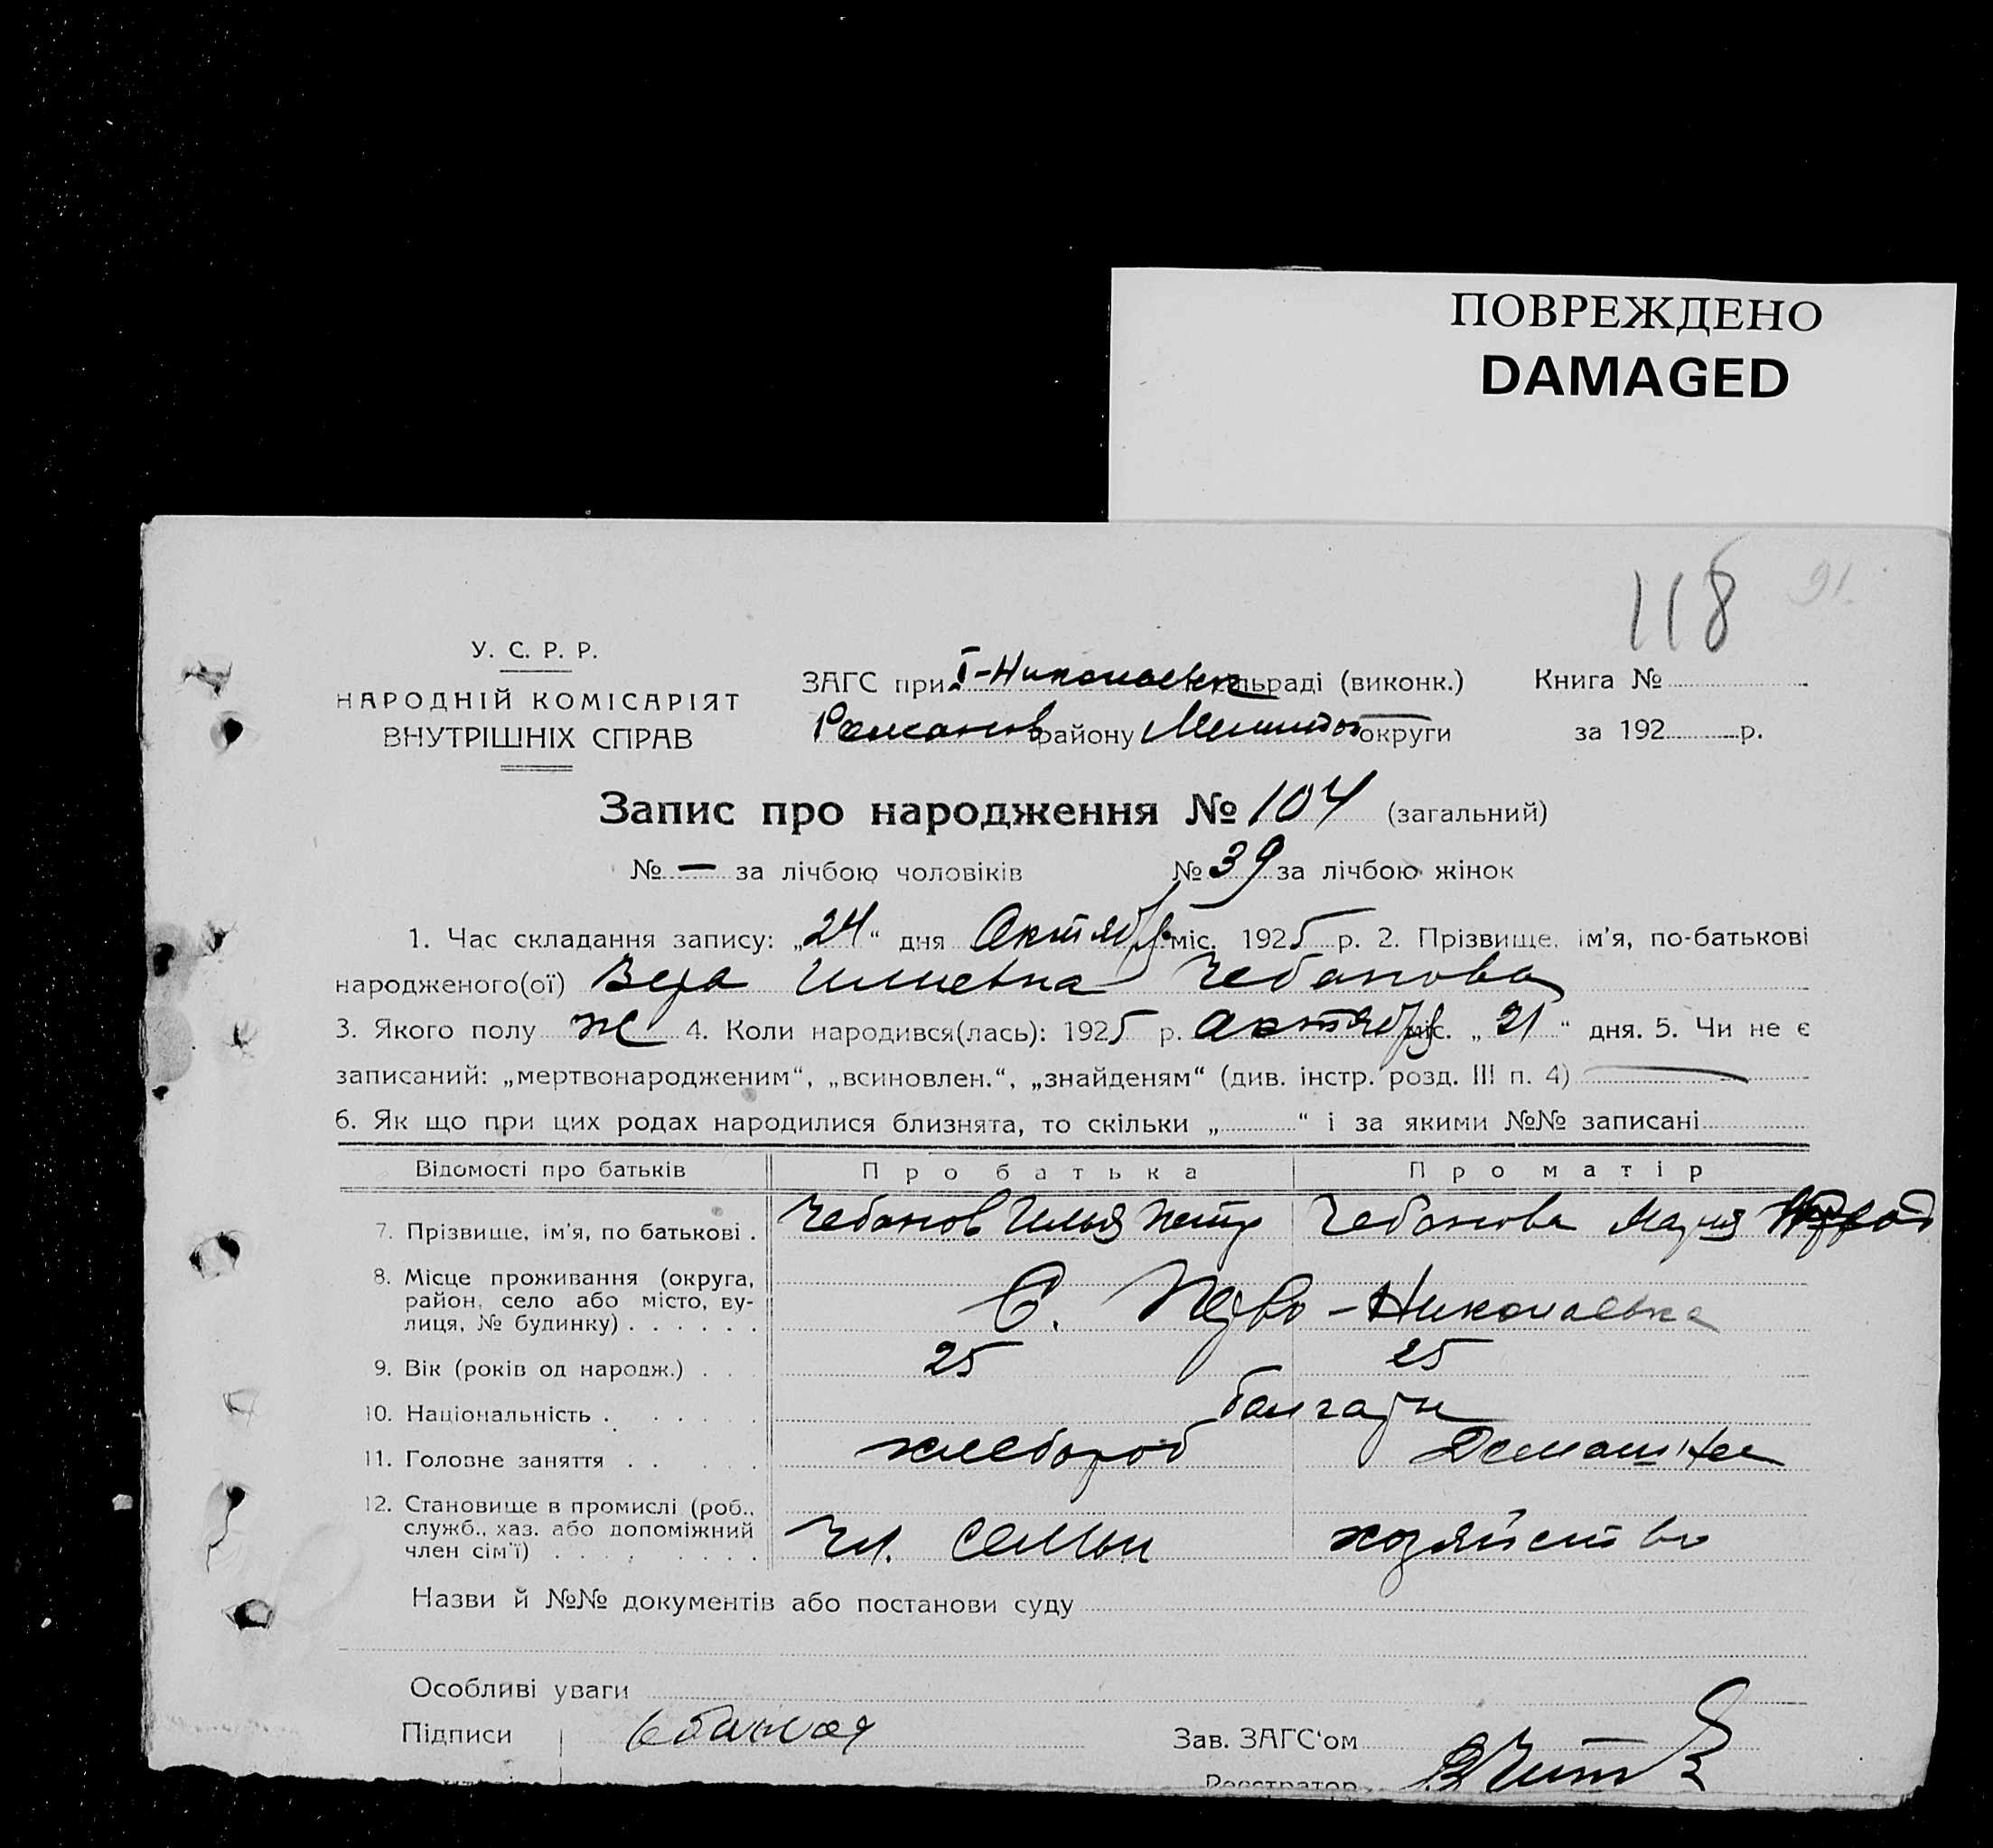 ПОВРЕЖДЕНО
DAMAGED
118 91.
У. С. Р. Р.
НАРОДНІЙ КОМІСАРІЯТ
ВНУТРІШНІХ СПРАВ
ЗАГС при І-Николаевск сільраді (виконк.)
Романов району Мелитоп округи
Книга №
за 192 р.
Запис про народження № 104 (загальний)
№ — за лічбою чоловіків № 39 за лічбою жінок
1. Час складання запису: „24“ дня Октября міс. 1925 р. 2. Прізвище, ім'я, по-батькові
народженого(ої) Вера Илиевна Чебанова
3. Якого полу ж 4. Коли народився(лась): 1925 р. октября міс. „21“ дня. 5. Чи не є
записаний: „мертвонародженим“, „всиновлен.“, „знайденям“ (див. інстр. розд. III п. 4) —
6. Як що при цих родах народилися близнята, то скільки „ “ і за якими №№ записані
Відомості про батьків Про батька Про матір
7. Прізвище, ім'я, по батькові . Чебанов Илья Петр Чебанова Мария
8. Місце проживання (округа,
район, село або місто, ву-
лиця, № будинку) . . . . . . С. Перво-Николаевка
9. Вік (років од народж.) . . . 25 25
10. Національність . . . . . болгары
11. Головне заняття . . . . . хлебороб Домашнее
12. Становище в промислі (роб.,
служб., хаз. або допоміжний
член сім'ї) . . . . . . . . Чл. семьи хозяйство
Назви й №№ документів або постанови суду
Особливі уваги
Підписи
Зав. ЗАГС'ом
Реєстратор